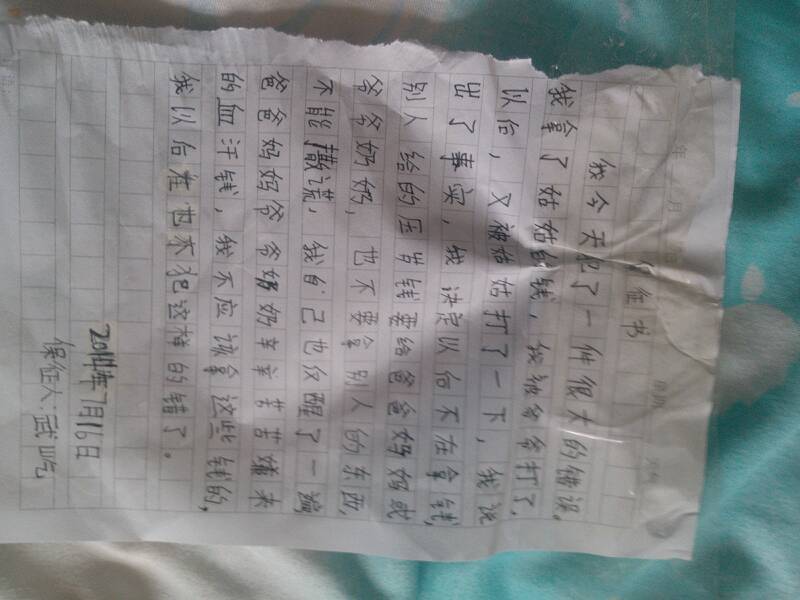 年 月
保证书
我今天犯了一件很大的错误,
我拿了姑姑的钱,我被爷爷打了,
以后,又被姑姑打了一下,我说
出了事实,我决定以后不在拿钱,
别人给的压岁钱要给爸爸妈妈或
爷爷奶奶,也不要拿别人的东西,
不能撒谎,我自己也仅醒了一遍,
爸爸妈妈爷爷奶奶辛辛苦苦嫌来
的血汗钱,我不应该拿这些钱的,
我以后在也不犯这样的错了。
2014年7月16日
保证人:武屹